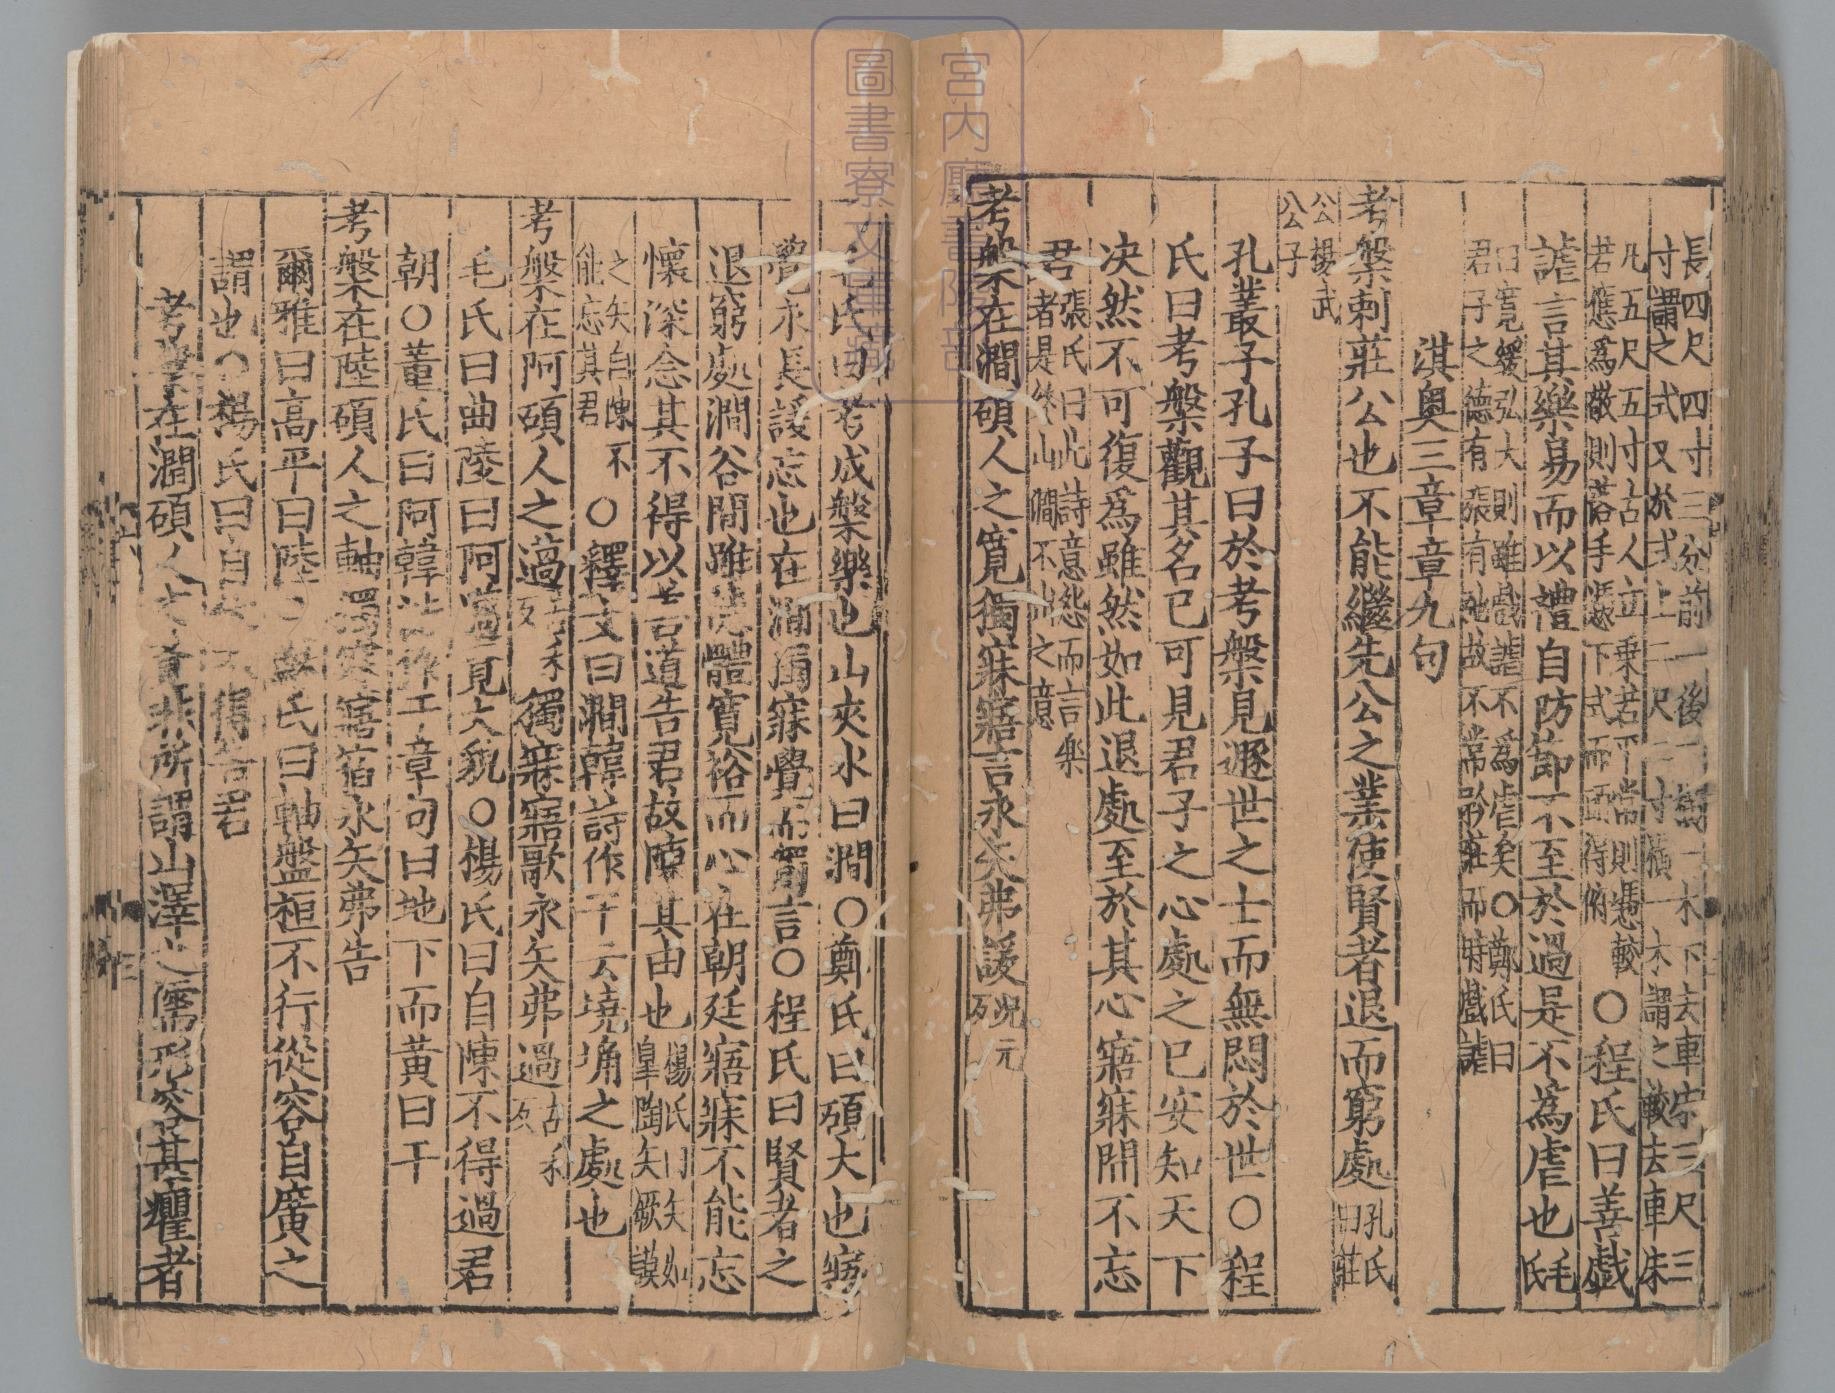 長四尺四寸三分前一後二
木下去車牀三尺三
寸謂之式又於式上二尺二寸橫一木謂之較去車牀
凡五尺五寸古人立乗若平常則慿較
若應爲敬則落手慿下式而頭得俯
○程氏曰善戯
謔言其樂易而以禮自防節不至於過是不爲虐也毛氏
曰寛緩弘大則雖戯謔不爲虐矣○鄭氏曰
君子之德有張有弛故不常矜莊而時戯謔
淇奥三章章九句
考槃刺莊公也不能繼先公之業使賢者退而窮處孔氏曰莊
公楊武
公子
孔叢子孔子曰於考槃見遯世之士而無悶於世○程
氏曰考槃觀其名已可見君子之心處之已安知天下
决然不可復爲雖然如此退處至於其心寤寐閒不忘
君張氏曰此詩意怨而言樂
者是終山澗不出之意
考槃在澗碩人之寛獨寐寤言永矢弗諼况元反
毛氏曰考成槃樂也山夾水曰澗○鄭氏曰碩大也寤
覺永長諼忘也在澗獨寐覺而獨言○程氏曰賢者之
退窮處澗谷閒雖德體寛裕而心在朝廷寤寐不能忘
懷深念其不得以善道告君故陳其由也楊氏曰矢如
皐陶矢厥謨
之矢自陳不
能忘其君
○釋文曰澗韓詩作干云墝埆之處也
考槃在阿碩人之薖苦禾反獨寐寤歌永矢弗過古禾反
毛氏曰曲陵曰阿薖寛大貌○楊氏曰自陳不得過君
朝○董氏曰阿韓詩作干章句曰地下而黄曰干
考槃在陸碩人之軸獨寐寤宿永矢弗告
爾雅曰高平曰陸○蘇氏曰軸盤桓不行從容自廣之
謂也○楊氏曰自陳不得告君
考槃在澗碩人之寛非所謂山澤之儒形容甚癯者
宮内廳書陵部
圖書寮文庫藏